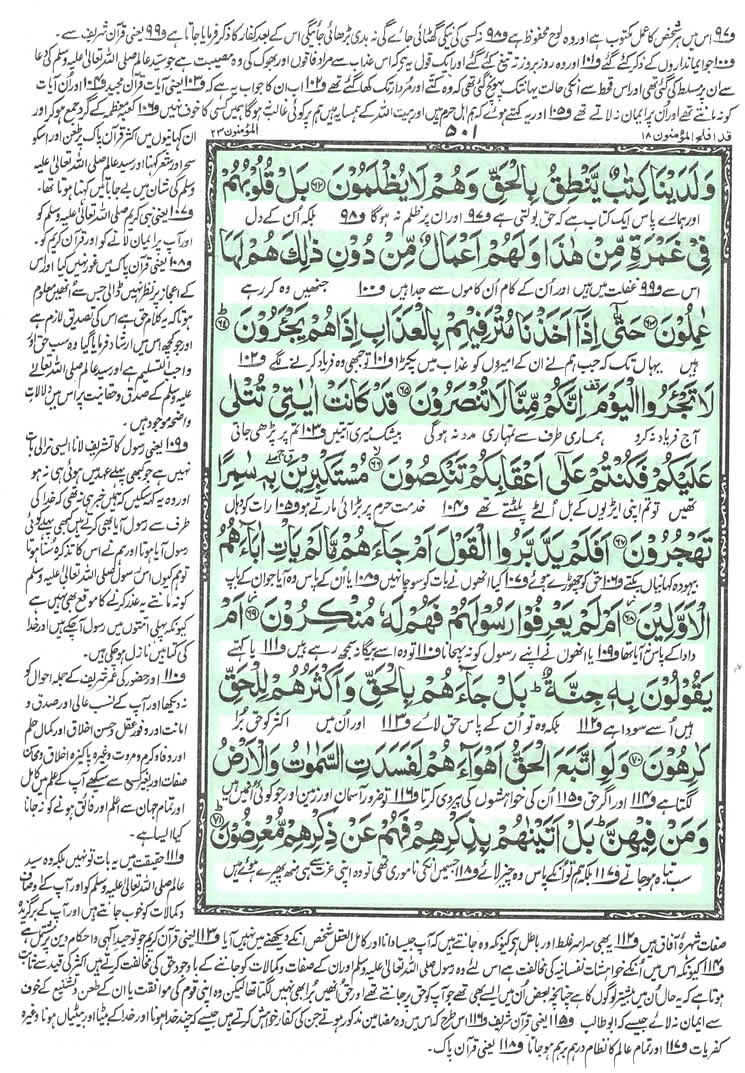 ف۹۷ اس میں ہر شخص کا عمل مکتوب ہے اور وہ لوح محفوظ ہے ف۹۸ نہ کسی کی نیکی گھٹائی جائے گی نہ بدی بڑھائی جائیگی اس کے بعد کفار کا ذکر فرمایا جاتا ہے ف۹۹ یعنی قرآن شریف سے۔
ف۱۰۰ جو ایمانداروں کے ذکر کئے گئے ف۱۰۱ اور وہ روز بروز تہ تیغ کئے گئے اور ایک قول یہ ہے کہ اس عذاب سے مراد فاقوں اور بھوک کی وہ مصیبت ہے جو سید عالم صلی اللہ تعالیٰ علیہ وسلم کی دعا
سے ان پر مسلط کی گئی تھی اور اس قحط سے انکی حالت یہاں تک پہنچ گئی تھی کہ وہ کتے اور مردار تک کھا گئے تھے ف۱۰۲ اب ان کا جواب یہ ہے کہ ف۱۰۳ یعنی آیات قرآن مجید ف۱۰۴ اور ان آیات
کو نہ مانتے تھے اور ان پر ایمان نہ لاتے تھے ف۱۰۵ اور یہ کہتے ہوئے کہ ہم اہل حرم ہیں اور بیت اللہ کے ہمسایہ ہیں ہم پر کوئی غالب نہ ہوگا ہمیں کسی کا خوف نہیں ف۱۰۶ کعبہ معظمہ کے گرد جمع ہو کر اور
قد افلح المؤمنون ۱۸
۵۰۱
المؤمنون ۲۳
وَلَدَیْنَا كِتٰبٌ یَّنْطِقُ بِالْحَقِّ وَهُمْ لَا یُظْلَمُوْنَ ﴿۶۲﴾ بَلْ قُلُوْبُهُمْ
اور ہمارے پاس ایک کتاب ہے کہ حق بولتی ہے ف۹۷ اور ان پر ظلم نہ ہوگا ف۹۸ بلکہ ان کے دل
فِیْ غَمْرَةٍ مِّنْ هٰذَا وَلَهُمْ اَعْمَالٌ مِّنْ دُوْنِ ذٰلِكَ هُمْ لَهَا
اس سے ف۹۹ غفلت میں ہیں اور ان کے کام ان کاموں سے جدا ہیں ف۱۰۰ جنھیں وہ کر رہے
عٰمِلُوْنَ ﴿۶۳﴾ حَتّٰۤی اِذَاۤ اَخَذْنَا مُتْرَفِیْهِمْ بِالْعَذَابِ اِذَا هُمْ یَجْـَٔرُوْنَ ﴿۶۴﴾
ہیں یہاں تک کہ جب ہم نے ان کے امیروں کو عذاب میں پکڑا ف۱۰۱ تو جبھی وہ فریاد کرنے لگے ف۱۰۲
لَا تَجْـَٔرُوا الْیَوْمَ اِنَّكُمْ مِّنَّا لَا تُنْصَرُوْنَ ﴿۶۵﴾ قَدْ كَانَتْ اٰیٰتِیْ تُتْلٰی
آج فریاد نہ کرو ہماری طرف سے تمہاری مدد نہ ہوگی بیشک میری آیتیں ف۱۰۳ تم پر پڑھی جاتی
عَلَیْكُمْ فَكُنْتُمْ عَلٰۤی اَعْقَابِكُمْ تَنْكِصُوْنَ ﴿۶۶﴾ مُسْتَكْبِرِیْنَ بِهٖ سٰمِرًا
تھیں تو تم اپنی ایڑیوں کے بل الٹے پلٹتے تھے ف۱۰۴ خدمت حرم پر بڑائی مارتے ہو ف۱۰۵ رات کو وہاں
تَهْجُرُوْنَ ﴿۶۷﴾ اَفَلَمْ یَدَّبَّرُوا الْقَوْلَ اَمْ جَآءَهُمْ مَّا لَمْ یَاْتِ اٰبَآءَهُمُ
بیہودہ کہانیاں بکتے ف۱۰۶ حق کو چھوڑے ہوئے ف۱۰۷ کیا انھوں نے بات کو سوچا نہیں ف۱۰۸ یا ان کے پاس وہ آیا جو ان کے باپ
الْاَوَّلِیْنَ ﴿۶۸﴾ اَمْ لَمْ یَعْرِفُوْا رَسُوْلَهُمْ فَهُمْ لَهٗ مُنْكِرُوْنَ ﴿۶۹﴾ اَمْ
دادا کے پاس نہ آیا تھا ف۱۰۹ یا انھوں نے اپنے رسول کو نہ پہچانا ف۱۱۰ تو وہ اسے بیگانہ سمجھ رہے ہیں ف۱۱۱ یا کہتے
یَقُوْلُوْنَ بِهٖ جِنَّةٌ بَلْ جَآءَهُمْ بِالْحَقِّ وَاَكْثَرُهُمْ لِلْحَقِّ
ہیں اسے سودا ہے ف۱۱۲ بلکہ وہ تو ان کے پاس حق لائے ف۱۱۳ اور ان میں اکثر کو حق برا
كٰرِهُوْنَ ﴿۷۰﴾ وَلَوِ اتَّبَعَ الْحَقُّ اَهْوَآءَهُمْ لَفَسَدَتِ السَّمٰوٰتُ وَالْاَرْضُ
لگتا ہے ف۱۱۴ اور اگر حق ف۱۱۵ ان کی خواہشوں کی پیروی کرتا ف۱۱۶ تو ضرور آسمان اور زمین اور جو کوئی ان میں ہیں
وَمَنْ فِیْهِنَّ بَلْ اَتَیْنٰهُمْ بِذِكْرِهِمْ فَهُمْ عَنْ ذِكْرِهِمْ مُّعْرِضُوْنَ ﴿۷۱﴾
سب تباہ ہو جاتے ف۱۱۷ بلکہ ہم تو ان کے پاس وہ چیز لائے ف۱۱۸ جس میں انکی ناموری تھی تو وہ اپنی عزت سے ہی منھ پھیرے ہوئے ہیں
ان کہانیوں میں اکثر قرآن پاک پر طعن اور اسکو
سحر اور شعر کہنا اور سید عالم صلی اللہ تعالیٰ علیہ
وسلم کی شان میں بے جا باتیں کہنا ہوتا تھا۔
ف۱۰۷ یعنی نبی کریم صلی اللہ تعالیٰ علیہ وسلم کو
اور آپ پر ایمان لانے کو اور قرآن کریم کو۔
ف۱۰۸ یعنی قرآن پاک میں غور نہیں کیا اور اس
کے اعجاز پر نظر نہیں ڈالی جس سے انھیں معلوم
ہوتا کہ یہ کلام حق ہے اس کی تصدیق لازم ہے
اور جو کچھ اس میں ارشاد فرمایا گیا وہ سب حق اور
واجب التسلیم ہے اور سید عالم صلی اللہ تعالیٰ
علیہ وسلم کے صدق و حقانیت پر اس میں دلالات
واضحہ موجود ہیں۔
ف۱۰۹ یعنی رسول کا تشریف لانا ایسی نرالی بات
نہیں ہے جو کبھی پہلے عہد میں ہوئی ہی نہ ہو
اور وہ یہ کہہ سکیں کہ ہمیں خبر ہی نہ تھی کہ خدا کی
طرف سے رسول آیا بھی کرتے ہیں کبھی پہلے کوئی
رسول آیا ہوتا اور ہم نے اس کا تذکرہ سنا ہوتا
تو ہم کیوں اس رسول صلی اللہ تعالیٰ علیہ وسلم
کو نہ مانتے یہ عذر کرنے کا موقع بھی نہیں ہے
کیونکہ پہلی امتوں میں رسول آچکے ہیں اور خدا
کی کتابیں نازل ہو چکی ہیں۔
ف۱۱۰ اور حضور کی عمر شریف کے جملہ احوال کو
نہ دیکھا اور آپ کے نسب عالی اور صدق و
امانت اور وفور عقل و حسن اخلاق اور کمال حلم
اور وفا و کرم و مروت وغیرہ پاکیزہ اخلاق و محاسن
صفات اور بغیر کسی سے سیکھے آپ کے علم میں کامل
اور تمام جہان سے اعلم اور فائق ہونے کو نہ جانا
کیا ایسا ہے۔
ف۱۱۱ حقیقت میں یہ بات تو نہیں بلکہ وہ سید
عالم صلی اللہ تعالیٰ علیہ وسلم کو اور آپ کے اوصاف
و کمالات کو خوب جانتے ہیں اور آپ کے برگزیدہ
صفات شہرۂ آفاق ہیں ف۱۱۲ یہ بھی سراسر غلط اور باطل ہے کیونکہ وہ جانتے ہیں کہ آپ جیسا دانا اور کامل العقل شخص انکے دیکھنے میں نہیں آیا ف۱۱۳ یعنی قرآن کریم جو توحید الٰہی و احکام دین پر مشتمل ہے
ف۱۱۴ کیونکہ اس میں انکے خواہشات نفسانیہ کی مخالفت ہے اس لئے وہ رسول صلی اللہ تعالیٰ علیہ وسلم اور ان کے صفات و کمالات کو جاننے کے باوجود حق کی مخالفت کرتے ہیں اکثر کی قید سے ثابت
ہوتا ہے کہ یہ حال ان میں بیشتر لوگوں کا ہے چنانچہ بعض ان میں ایسے بھی تھے جو آپ کو حق پر جانتے تھے اور حق انھیں برا بھی نہیں لگتا تھا لیکن وہ اپنی قوم کی موافقت یا ان کے طعن و تشنیع کے خوف
سے ایمان نہ لائے جیسے کہ ابو طالب ف۱۱۵ یعنی قرآن شریف ف۱۱۶ اس طرح کہ اس میں وہ مضامین مذکور ہوتے جن کی کفار خواہش کرتے ہیں جیسے کہ چند خدا ہونا اور خدا کے بیٹا اور بیٹیاں ہونا وغیرہ
کفریات ف۱۱۷ اور تمام عالم کا نظام درہم برہم ہو جاتا ف۱۱۸ یعنی قرآن پاک۔